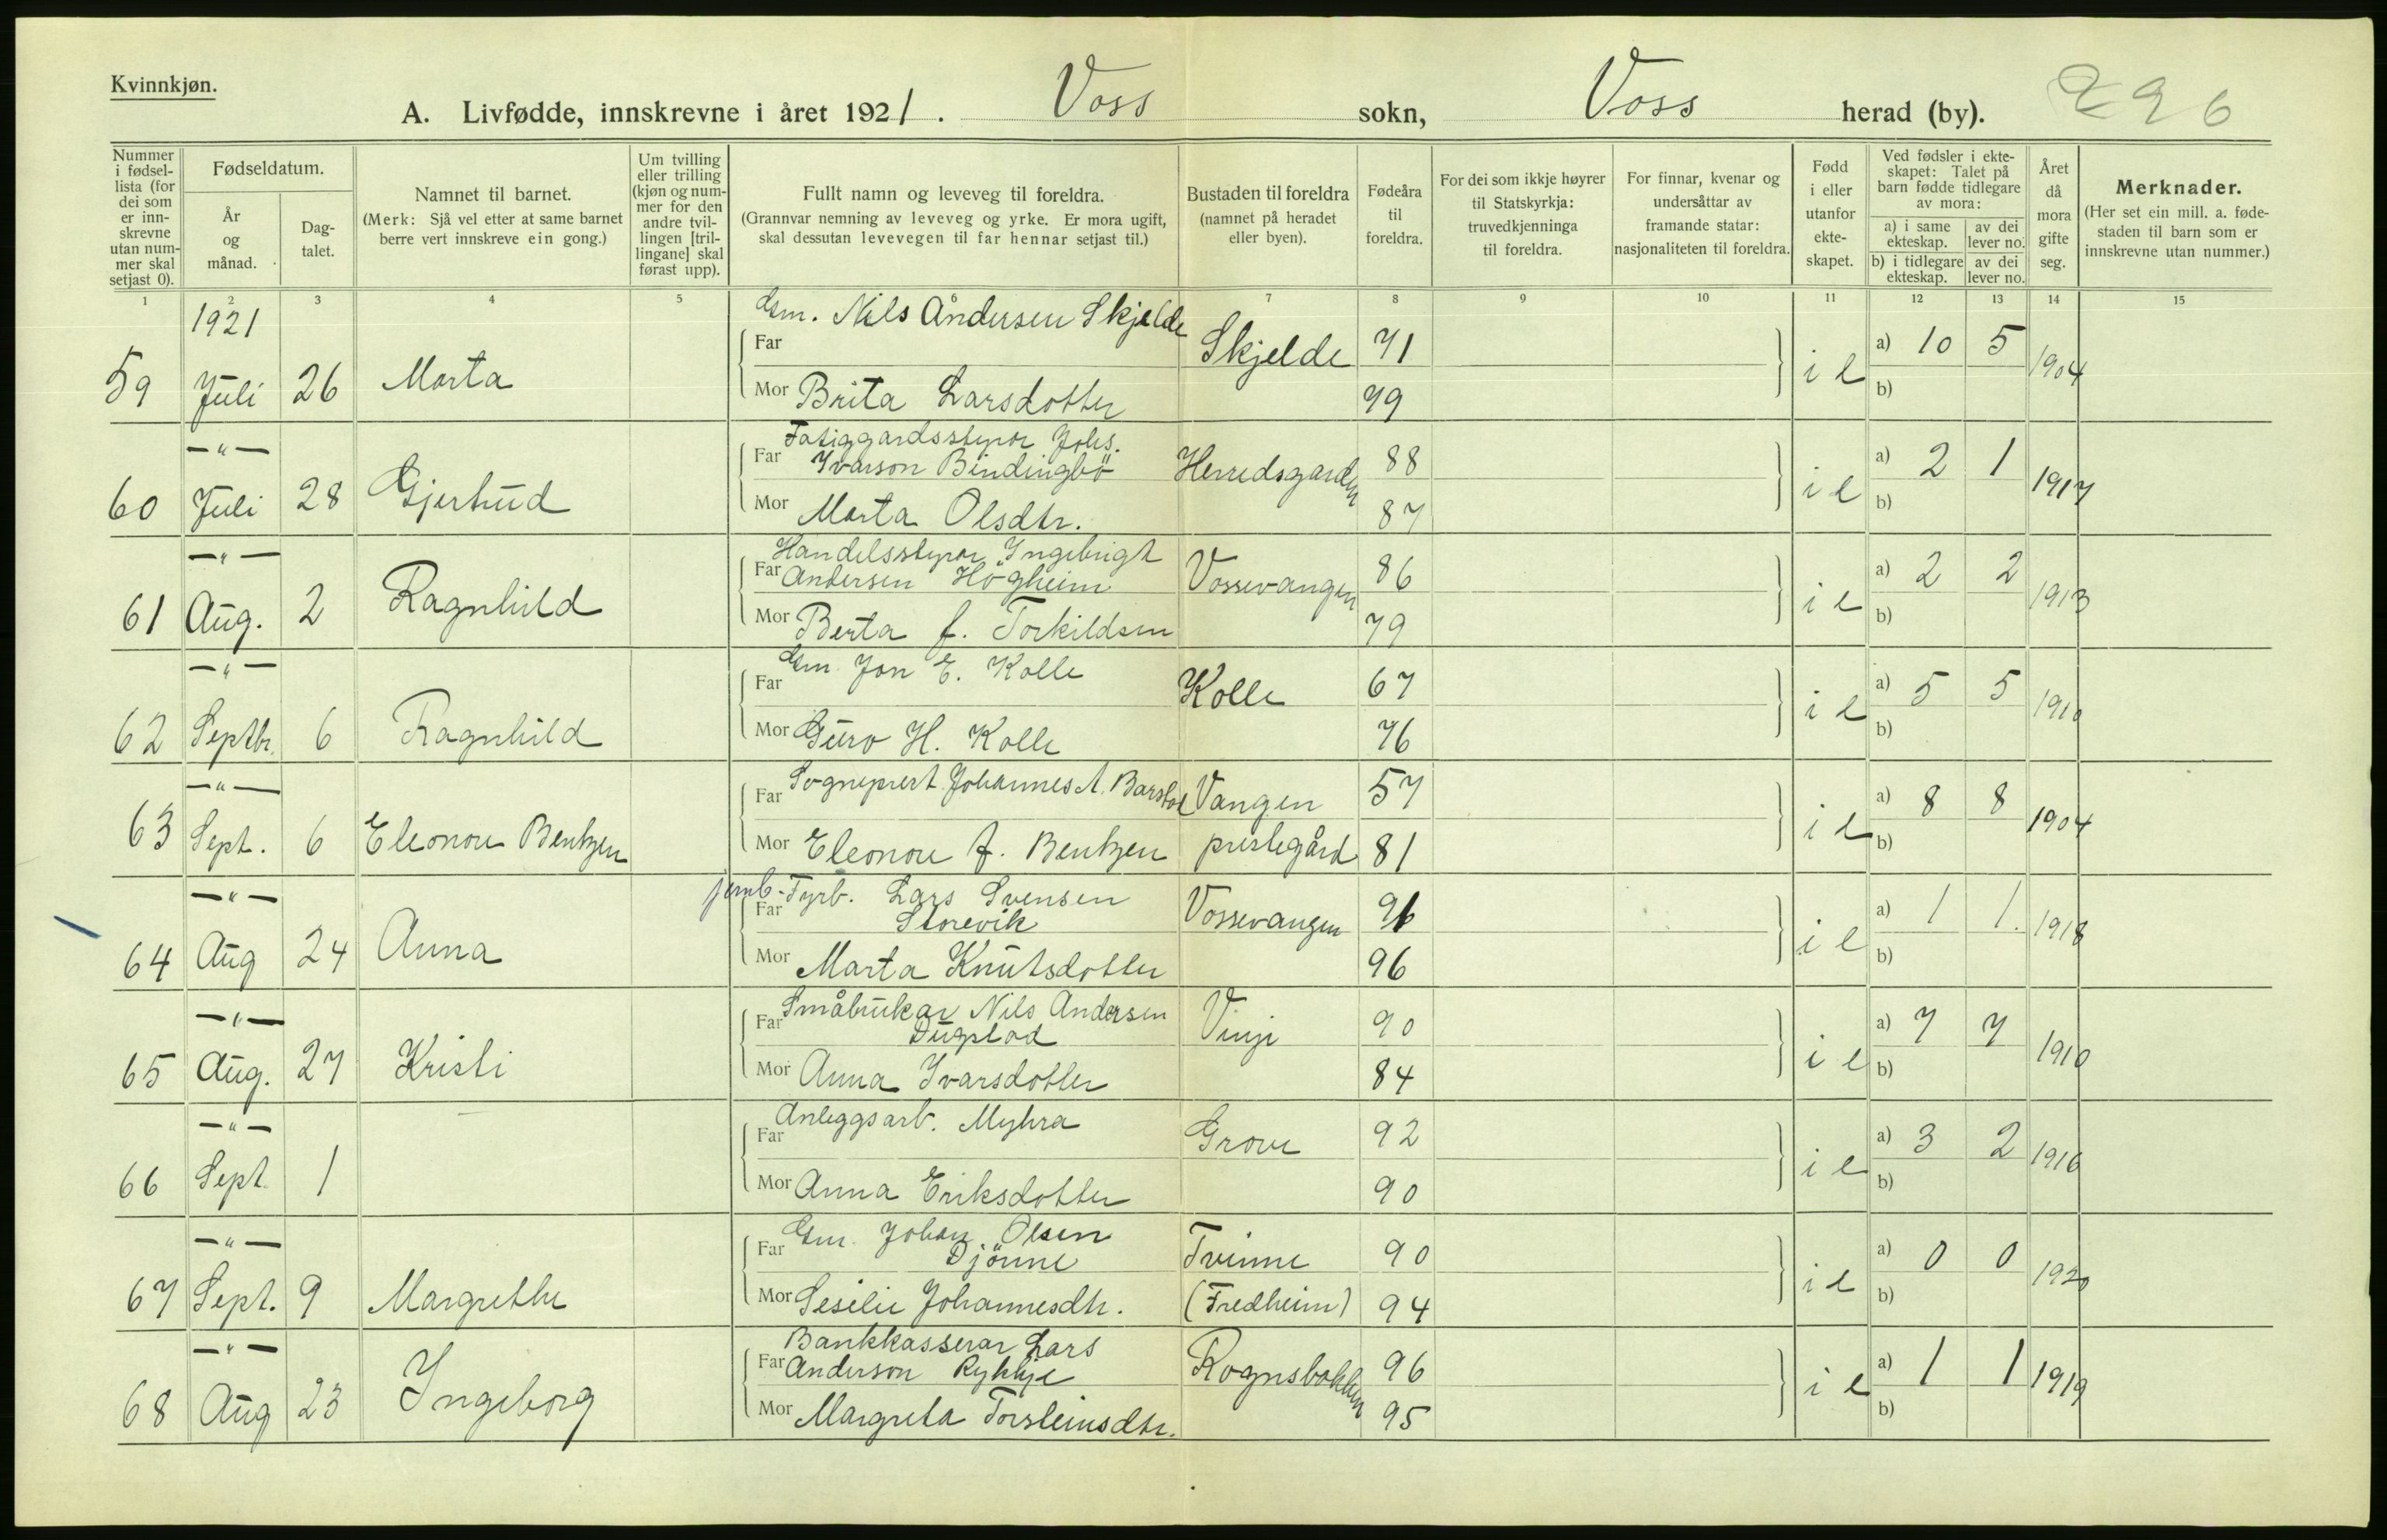 Kvinnkjøn.
A. Livfødde, innskrevne i året 1921. Voss sokn, Voss herad (by). 296
Nummer i fødsel-lista (for dei som er inn-skrevne utan num-mer skal setjast 0).
Fødseldatum.
År og månad.
Dag-talet.
Namnet til barnet.
(Merk: Sjå vel etter at same barnet berre vert innskreve ein gong.)
Um tvilling eller trilling (kjøn og num-mer for den andre tvil-lingen [tril-lingane] skal førast upp).
Fullt namn og leveveg til foreldra.
(Grannvar nemning av leveveg og yrke. Er mora ugift, skal dessutan levevegen til far hennar setjast til.)
Bustaden til foreldra (namnet på heradet eller byen).
Fødeåra til foreldra.
For dei som ikkje høyrer til Statskyrkja: truvedkjenninga til foreldra.
For finnar, kvenar og undersåttar av framande statar: nasjonaliteten til foreldra.
Fødd i eller utanfor ekte-skapet.
Ved fødsler i ekte-skapet: Talet på barn fødde tidlegare av mora:
a) i same ekteskap. av dei lever no.
b) i tidlegare ekteskap. av dei lever no.
Året då mora gifte seg.
Merknader.
(Her set ein mill. a. føde-staden til barn som er innskrevne utan nummer.)
1 2 3 4 5 6 7 8 9 10 11 12 13 14 15
1921
Gm. Nils Andersen Skjelde
59 Juli 26 Marta Far Skjelde 71 i e a) 10 5 1904
Mor Brita Larsdotter 79 b)
— " — Fatiggardsstyrar Johs.
60 Juli 28 Gjertrud Far Ivarson Bindingbö Herredsgarden 88 i e a) 2 1 1917
Mor Marta Olsdtr. 87 b)
— " — Handelsstyrar Ingebrigt
61 Aug. 2 Ragnhild Far Andersen Högheim Vossevangen 86 i e a) 2 2 1913
Mor Berta f. Torkildsen 79 b)
— " — Gm. Jon E. Kolle
62 Septbr. 6 Ragnhild Far Kolle 67 i e a) 5 5 1910
Mor Guro H. Kolle 76 b)
— " — Sogneprest Johannes A. Barstad
63 Sept. 6 Eleonore Bentzen Far Vangen 57 i e a) 8 8 1904
Mor Eleonore f. Bentzen prestegård 81 b)
— " — jernb.-Fyrb. Lars Svensen
64 Aug 24 Anna Far Storevik Vossevangen 96 i e a) 1 1. 1918
Mor Marta Knutsdotter 96 b)
— " — Småbrukar Nils Andersen
65 Aug. 27 Kristi Far Dugstad Vinje 90 i e a) 7 7 1910
Mor Anna Ivarsdotter 84 b)
— " — Anleggsarb. Myhra
66 Sept. 1 Far Grove 92 i e a) 3 2 1916
Mor Anna Eriksdotter 90 b)
— " — Gm. Johan Olsen
67 Sept. 9 Margrethe Far Djönne Tvinne 90 i e a) 0 0 1920
Mor Sesilie Johannesdtr. (Fredheim) 94 b)
— " — Bankkasserar Lars
68 Aug 23 Ingeborg Far Anderson Rykkje Rognsbakken 96 i e a) 1 1 1919
Mor Margreta Torsteinsdtr. 95 b)